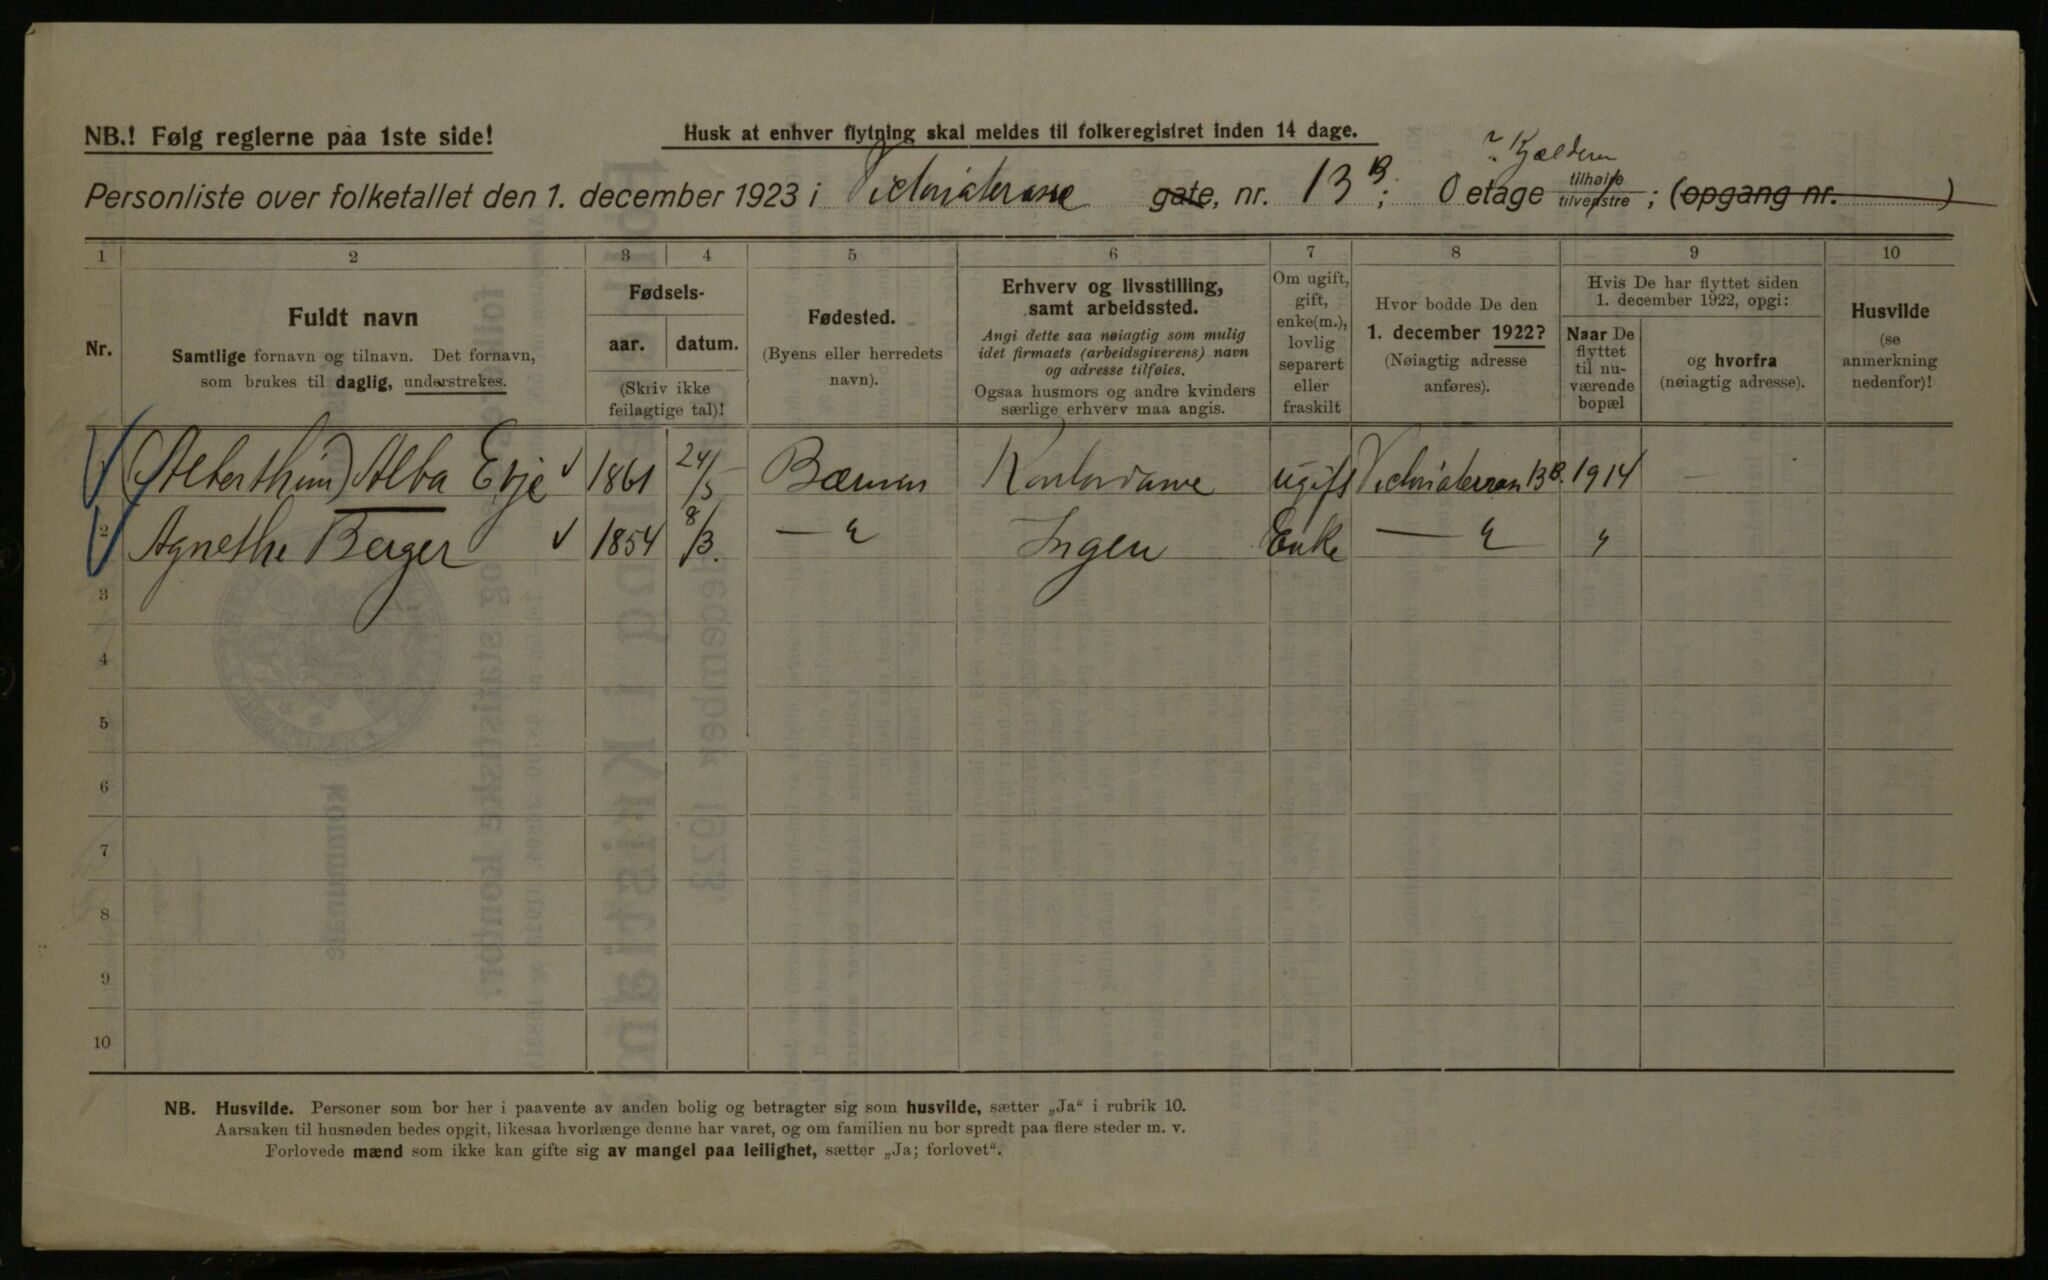 NB.! Følg reglerne paa 1ste side!
Husk at enhver flytning skal meldes til folkeregistret inden 14 dage.
i Kjælderen
Personliste over folketallet den 1. december 1923 i Victoriaterasse gate, nr. 13 B; 0 etage tilhøire tilvenstre; (opgang nr. )
1 2 3 4 5 6 7 8 9 10
Nr.
Fuldt navn
Samtlige fornavn og tilnavn. Det fornavn,
som brukes til daglig, understrekes.
Fødsels-
aar. datum.
(Skriv ikke
feilagtige tal)!
Fødested.
(Byens eller herredets
navn).
Erhverv og livsstilling,
samt arbeidssted.
Angi dette saa nøiagtig som mulig
idet firmaets (arbeidsgiverens) navn
og adresse tilføies.
Ogsaa husmors og andre kvinders
særlige erhverv maa angis.
Om ugift,
gift,
enke(m.),
lovlig
separert
eller
fraskilt
Hvor bodde De den
1. december 1922?
(Nøiagtig adresse
anføres).
Hvis De har flyttet siden
1. december 1922, opgi:
Naar De
flyttet
til nu-
værende
bopæl
og hvorfra
(nøiagtig adresse).
Husvilde
(se
anmerkning
nedenfor)!
(Alberthine) Alba Evje 1861 24/5 Bærum Kontordame ugift Victoriaterrasse 13 B. 1914 —
2 Agnethe Berger 1854 8/3. — " Ingen Enke — " "
3
4
5
6
7
8
9
10
NB. Husvilde. Personer som bor her i paavente av anden bolig og betragter sig som husvilde, sætter „Ja“ i rubrik 10.
Aarsaken til husnøden bedes opgit, likesaa hvorlænge denne har varet, og om familien nu bor spredt paa flere steder m. v.
Forlovede mænd som ikke kan gifte sig av mangel paa leilighet, sætter „Ja; forlovet“.